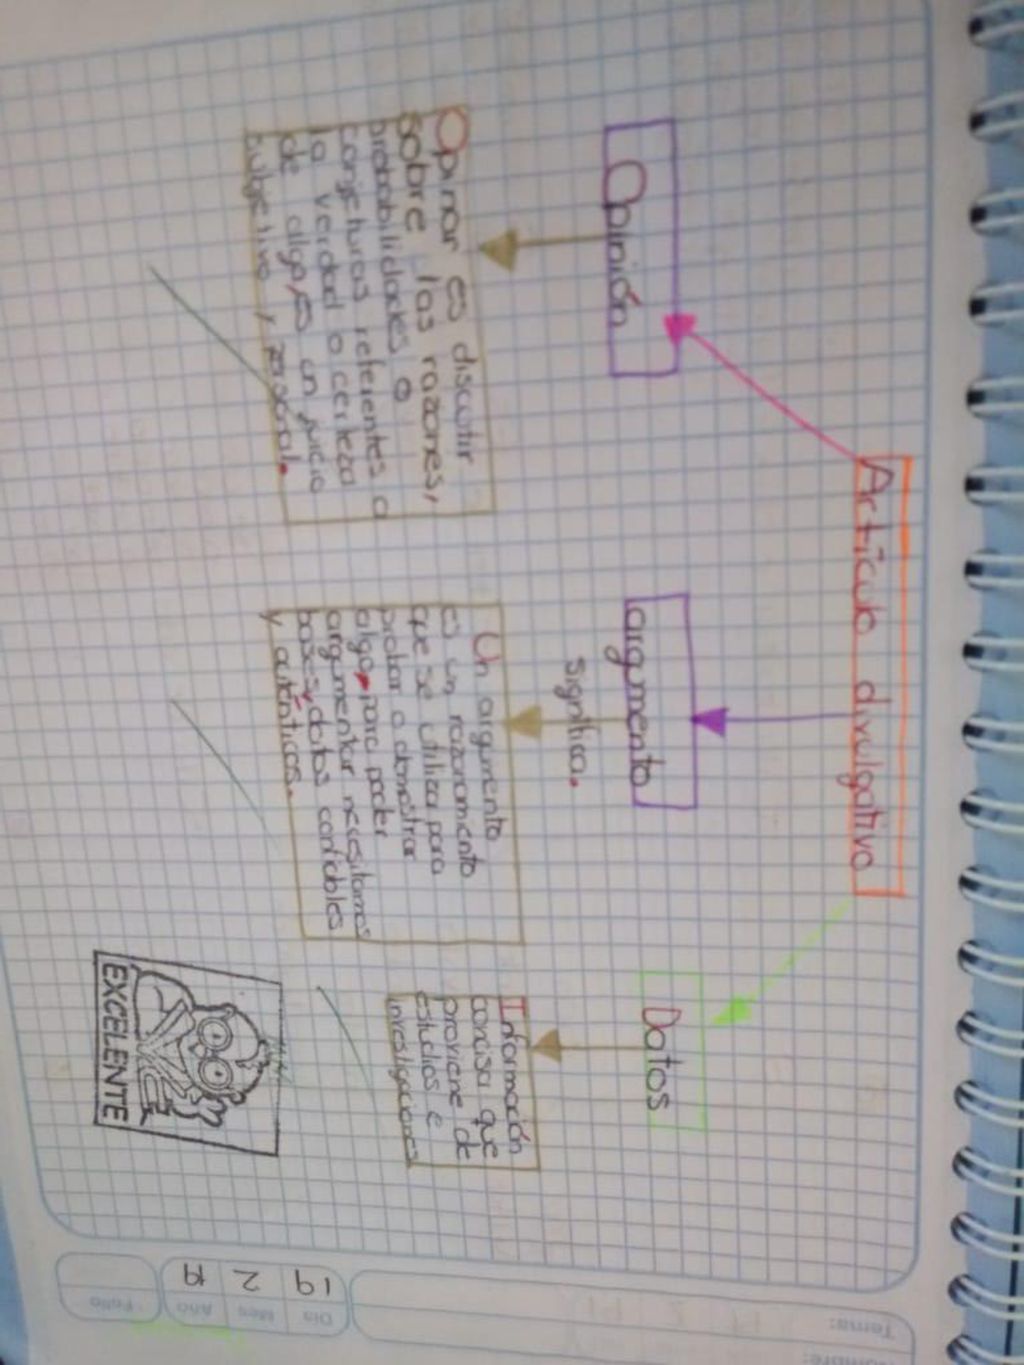 Artículo divulgativo
Opinión
Opinar es discutir
sobre las razones,
probabilidades o
conjeturas referentes a
la verdad o certeza
de algo, es un juicio
subjetivo, personal.
argumento
significa.
Un argumento
es un razonamiento
que se utiliza para
probar o demostrar
algo, para poder
argumentar necesitamos
bases, datos confiables
y auténticos.
Datos
Información
concisa que
proviene de
estudios e
investigaciones
EXCELENTE
Tema:
Día Mes Año Folio
19 2 19